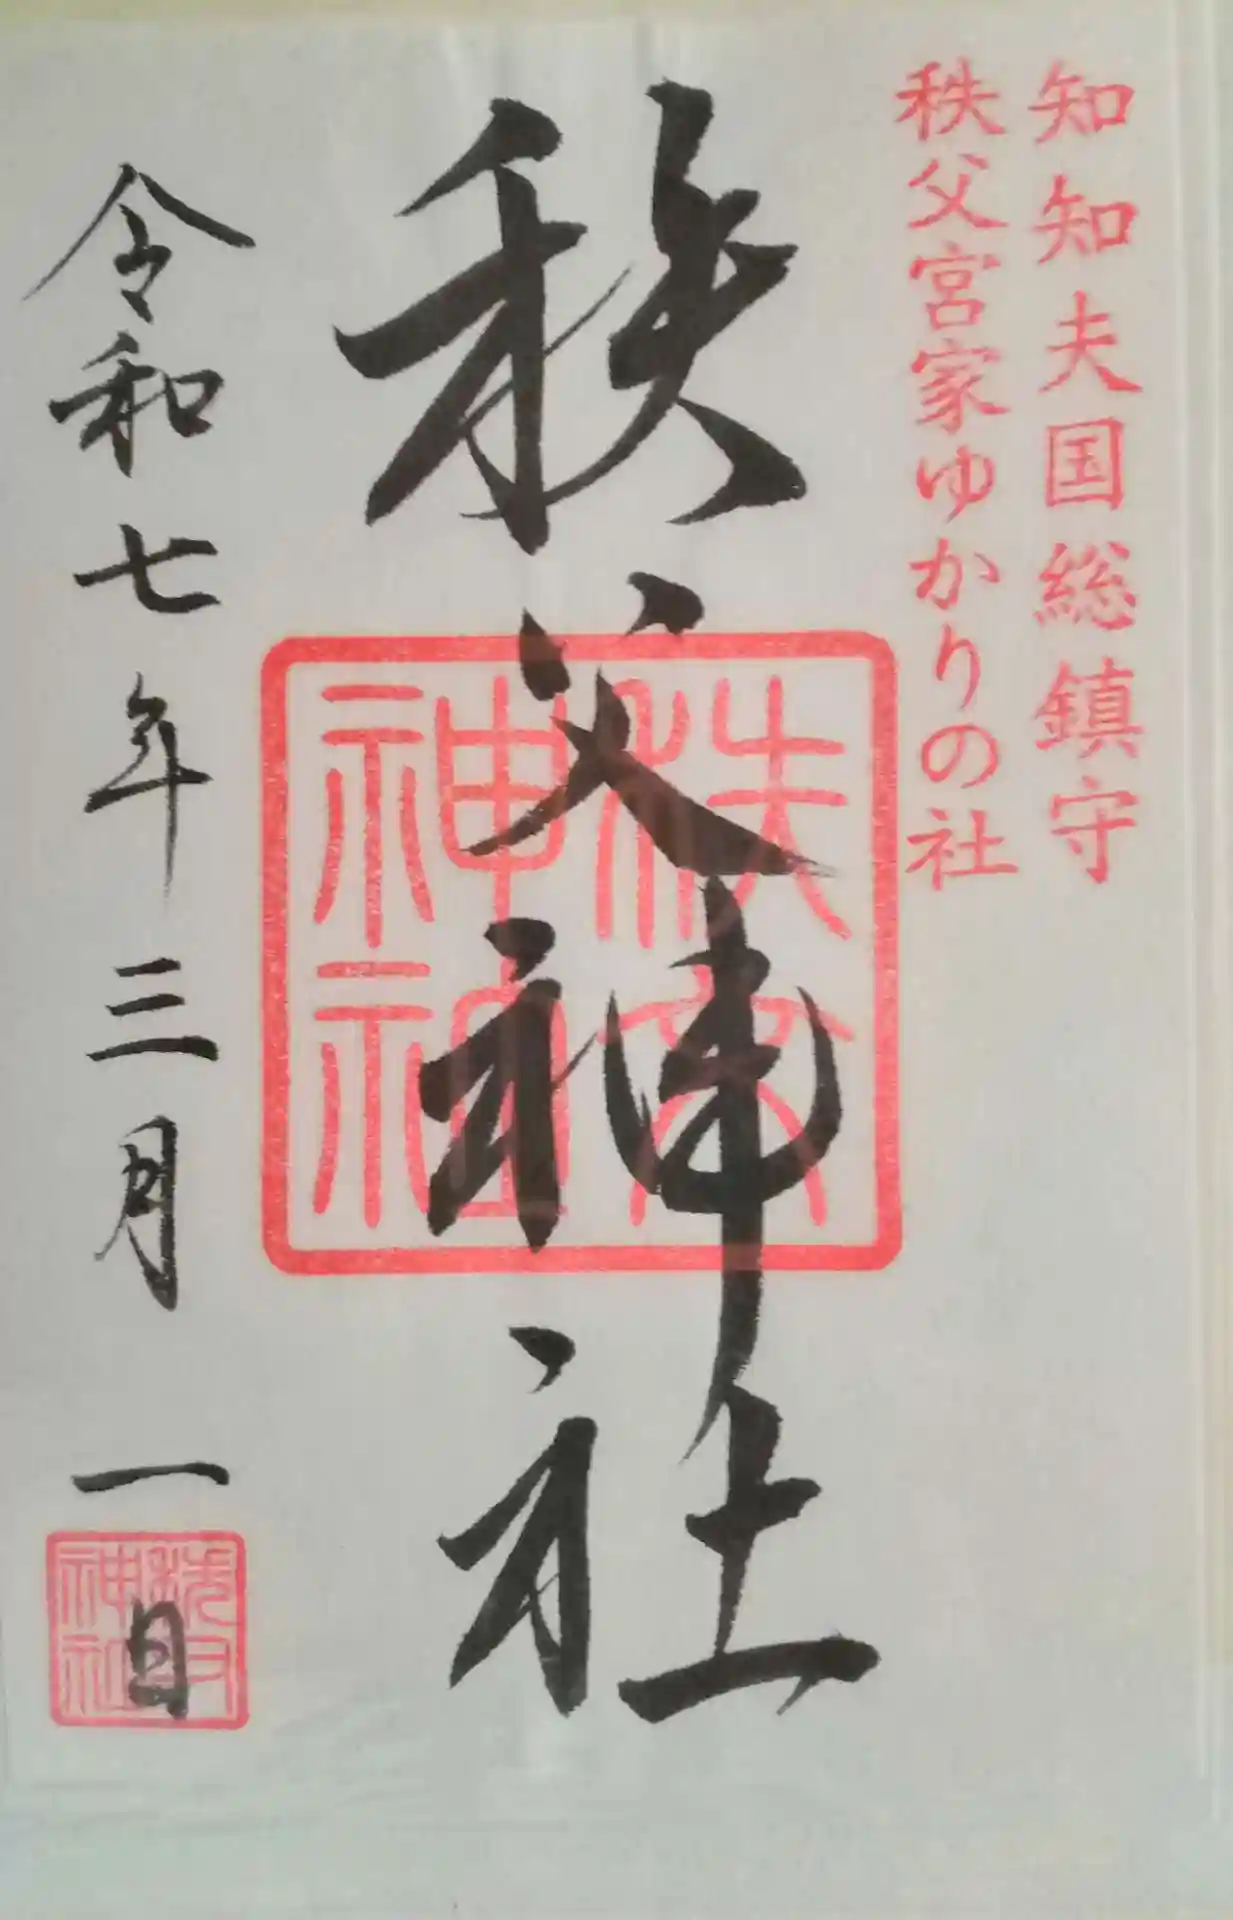 知知夫国総鎮守
秩父宮家ゆかりの社
秩父神社
秩父
神社
令和七年三月一日
秩父
神社